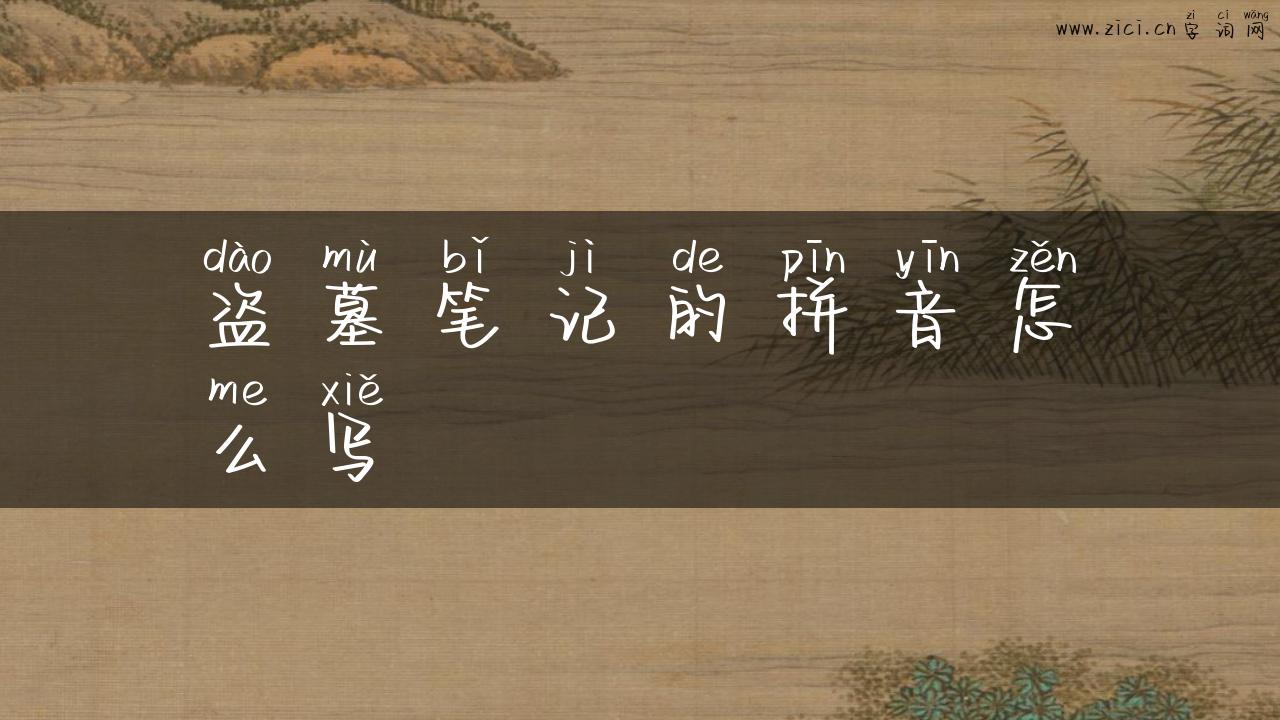 zì cí wǎng
www.zici.cn 字词网
dào mù bǐ jì de pīn yīn zěn
盗墓笔记的拼音怎
me xiě
么写